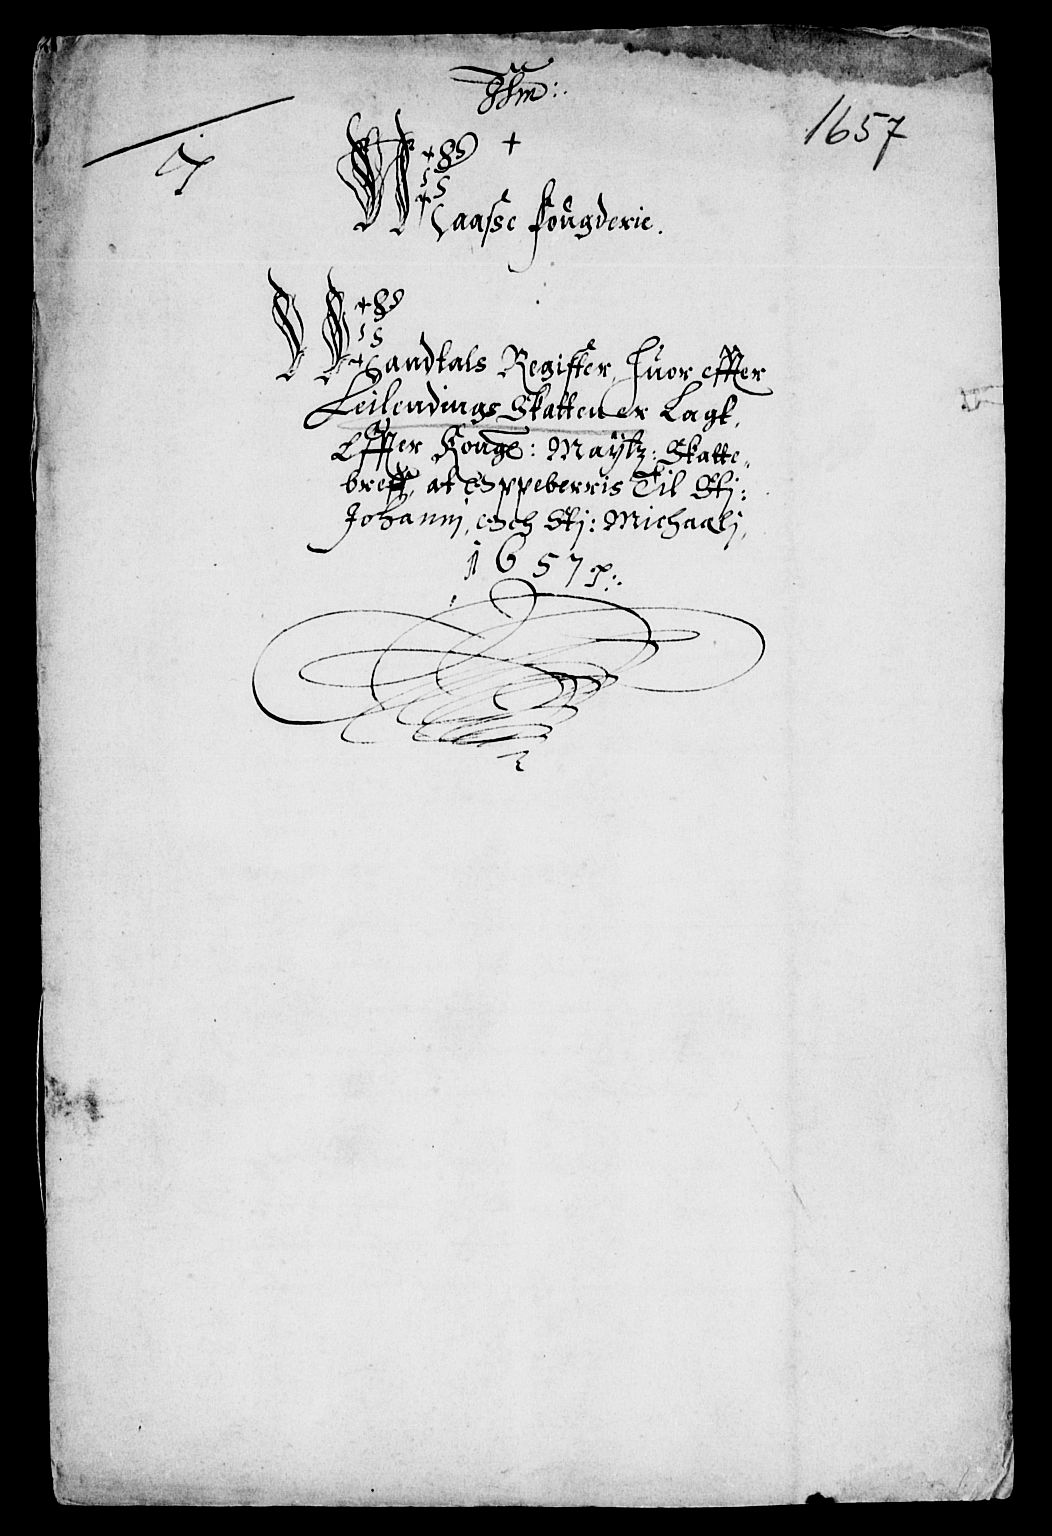 1657
Naasse fougderie.
Mandtals Register, huor effter
Leilendings Skatten er Lagt,
Effter Kong: Maÿtz: Skatte
breff, at Oppeberris Til Stj:
Johannj, och Stj: Michaelj,
1657